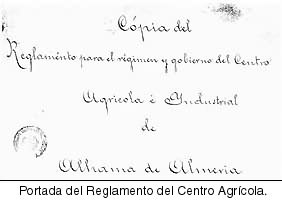 Cópia del
Reglaménto para el régimen y gobierno del Centro
Agricola é Industrial
de
Alhama de Almeria
Portada del Reglamento del Centro Agrícola.